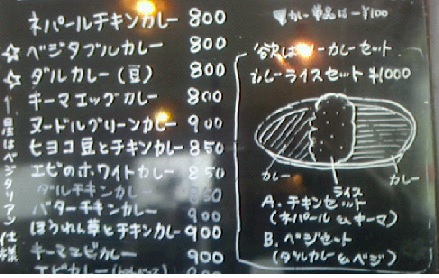 ネパールチキンカレー 800
☆ベジタブルカレー 800
☆ダルカレー(豆) 800
キーマエッグカレー 800
ヌードルグリーンカレー 900
ヒヨコ豆とチキンカレー 850
エビのホワイトカレー 850
ダルチキンカレー 850
バターチキンカレー 900
ほうれん草とチキンカレー 900
キーマエビカレー 900
エビカレー
☆星はベジタリアン仕様
カレー単品は-¥100
欲ばりカレーセット
カレーライスセット ¥1000
カレー
ライス
カレー
A. チキンセット
(ネパール&キーマ)
B. ベジセット
(ダルカレー&ベジ)